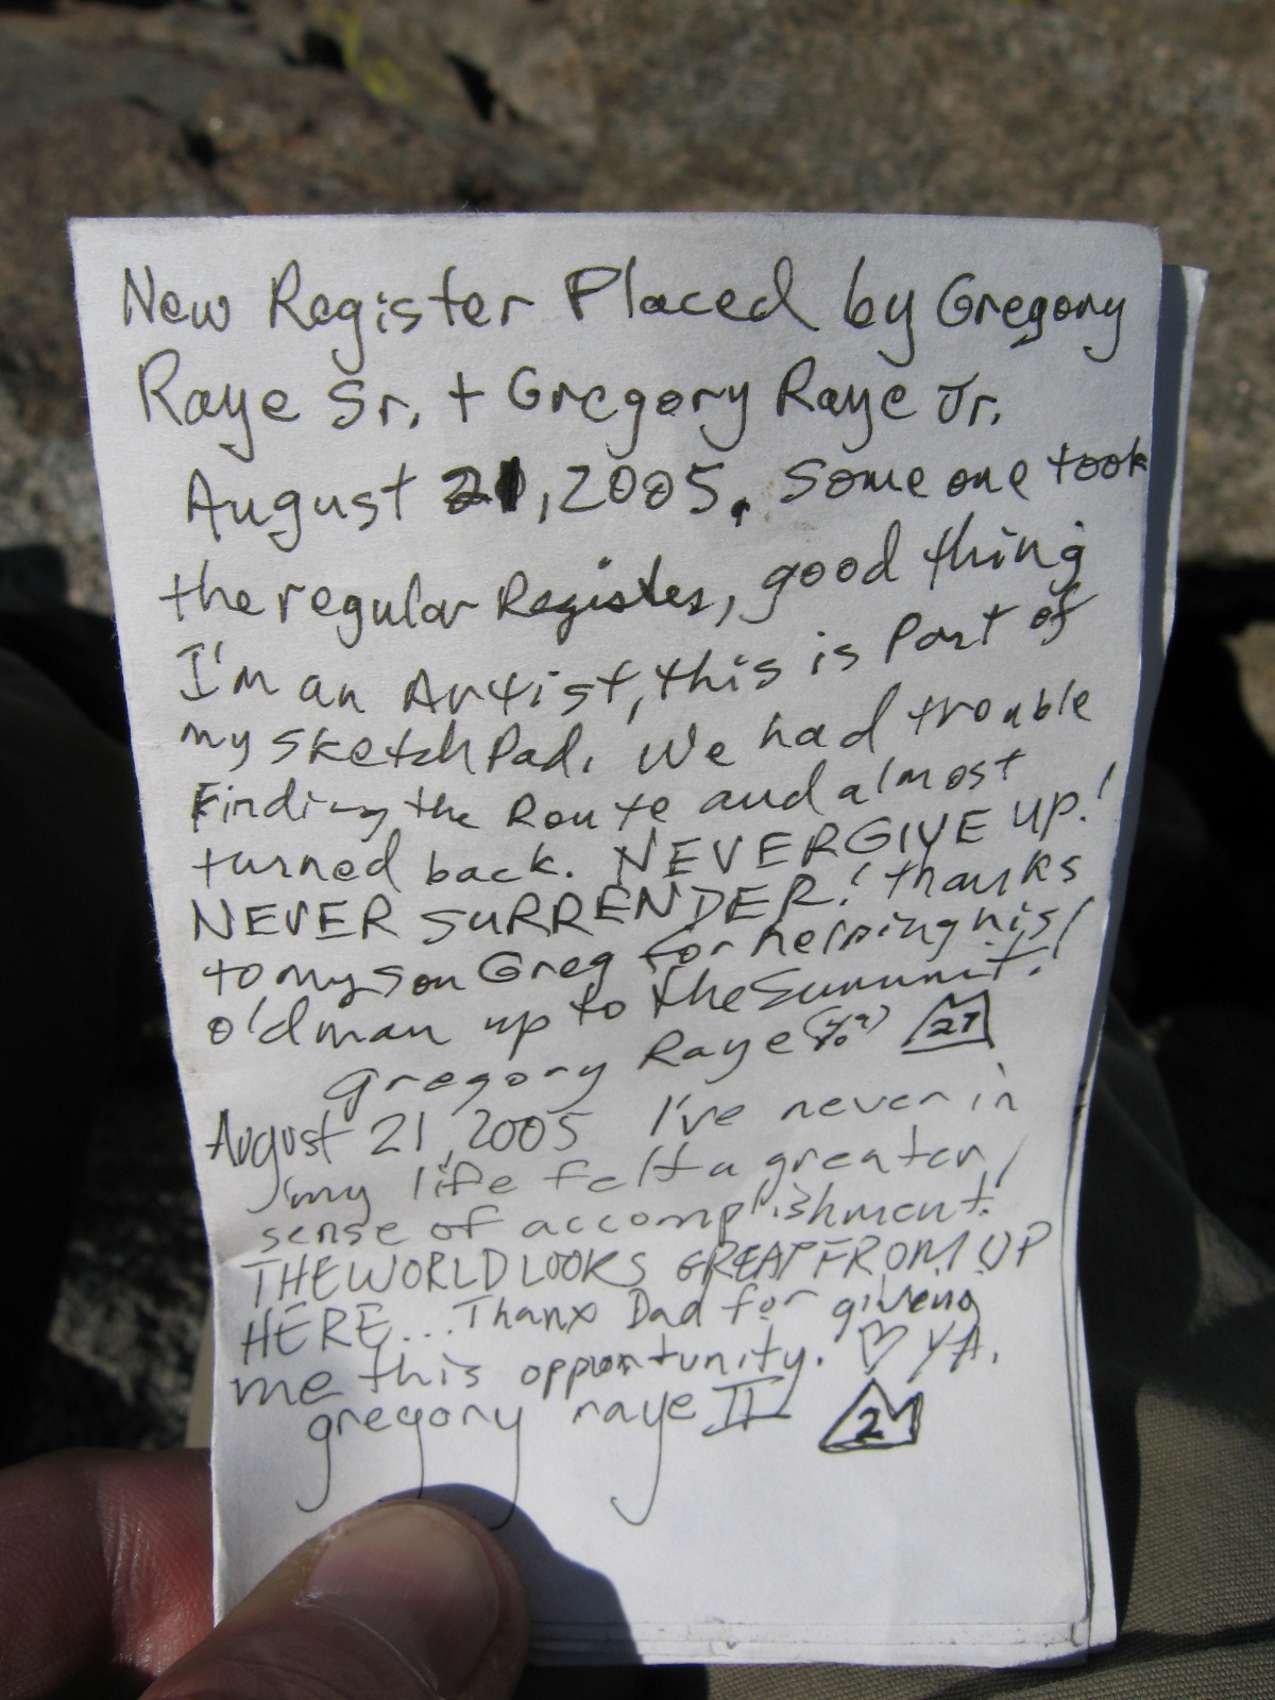 New Register Placed by Gregory
Raye Sr. + Gregory Raye Jr.
August 21, 2005. Someone took
the regular Register, good thing
I'm an Artist, this is Part of
my sketch Pad. We had trouble
Finding the Route and almost
turned back. NEVER GIVE UP!
NEVER SURRENDER! thanks
to my son Greg for helping his
old man up to the Summit!
Gregory Raye 27
August 21, 2005 I've never in
my life felt a greater
sense of accomplishment!
THE WORLD LOOKS GREAT FROM UP
HERE... Thanx Dad for giving
me this opportunity. ♡ YA.
gregory raye II 2